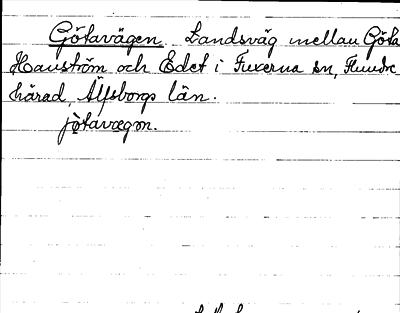 Götavägen. Landsväg mellan Göta
Hanström och Edet i Fuxerna sn, Flundre
härad, Älfsborgs län.
jötavægən.